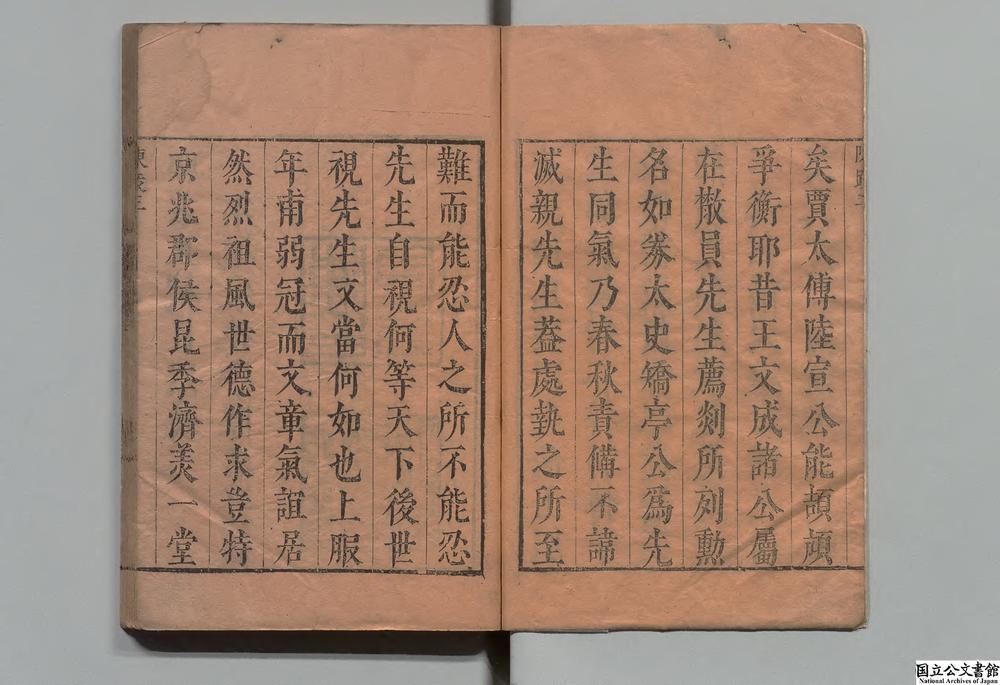 矣賈太傅陸宣公能頡頏
爭衡耶昔王文成諸公屬
在散員先生薦剡所列勲
名如券太史矯亭公爲先
生同氣乃春秋責備不諱
滅親先生蓋處執之所至
難而能忍人之所不能忍
先生自視何等天下後世
視先生又當何如也上服
年甫弱冠而文章氣誼居
然烈祖風世德作求豈特
京兆郡侯昆季濟美一堂
国立公文書館
National Archives of Japan